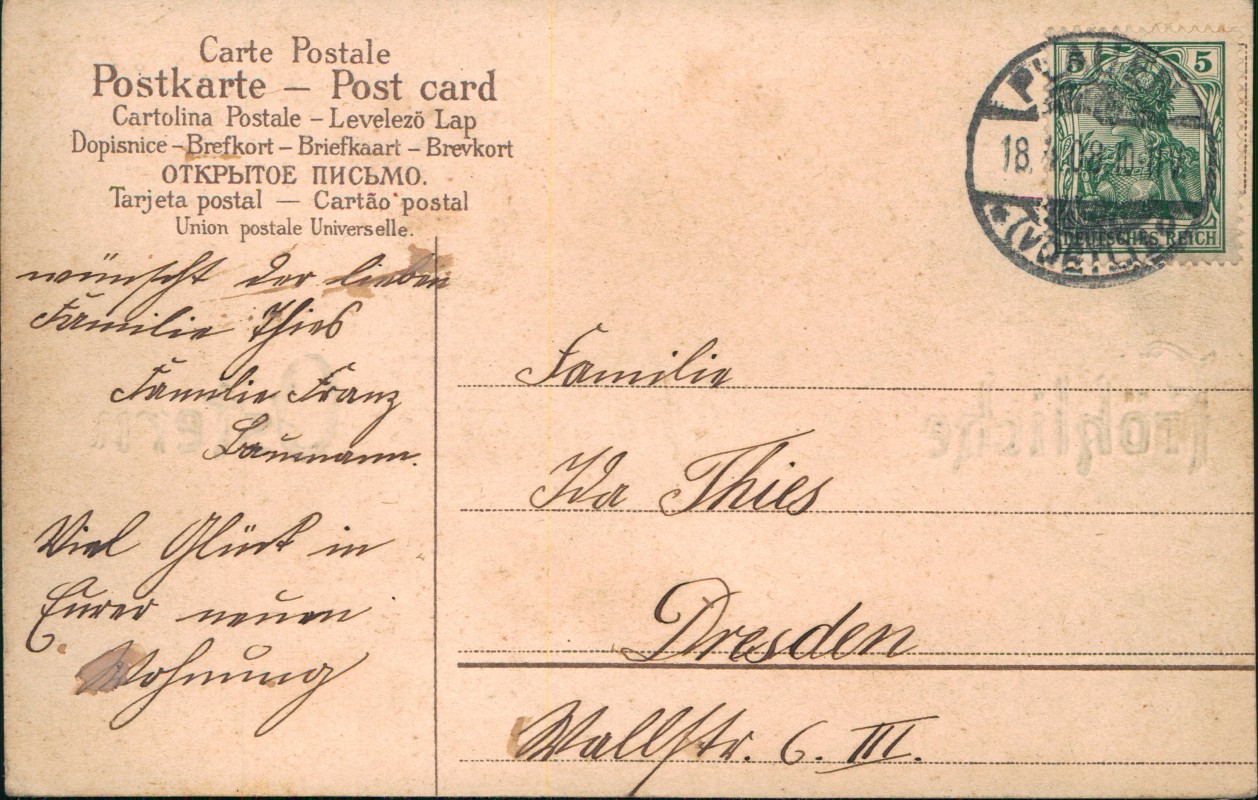 Carte Postale
Postkarte — Post card
Cartolina Postale – Levelező Lap
Dopisnice – Brefkort – Briefkaart – Brevkort
ОТКРЫТОЕ ПИСЬМО.
Tarjeta postal — Cartão postal
Union postale Universelle.
wünscht der lieben
Familie Thies
Familie Franz
Baumann.
Viel Glück in
Eurer neuen
Wohnung
PLAUEN
18. 08. 10-11
* (VOGTL.)
5 5
DEUTSCHES REICH
Familie
Ida Thies
Dresden
Wallstr. 6. III.
Fröhliche
Ostern